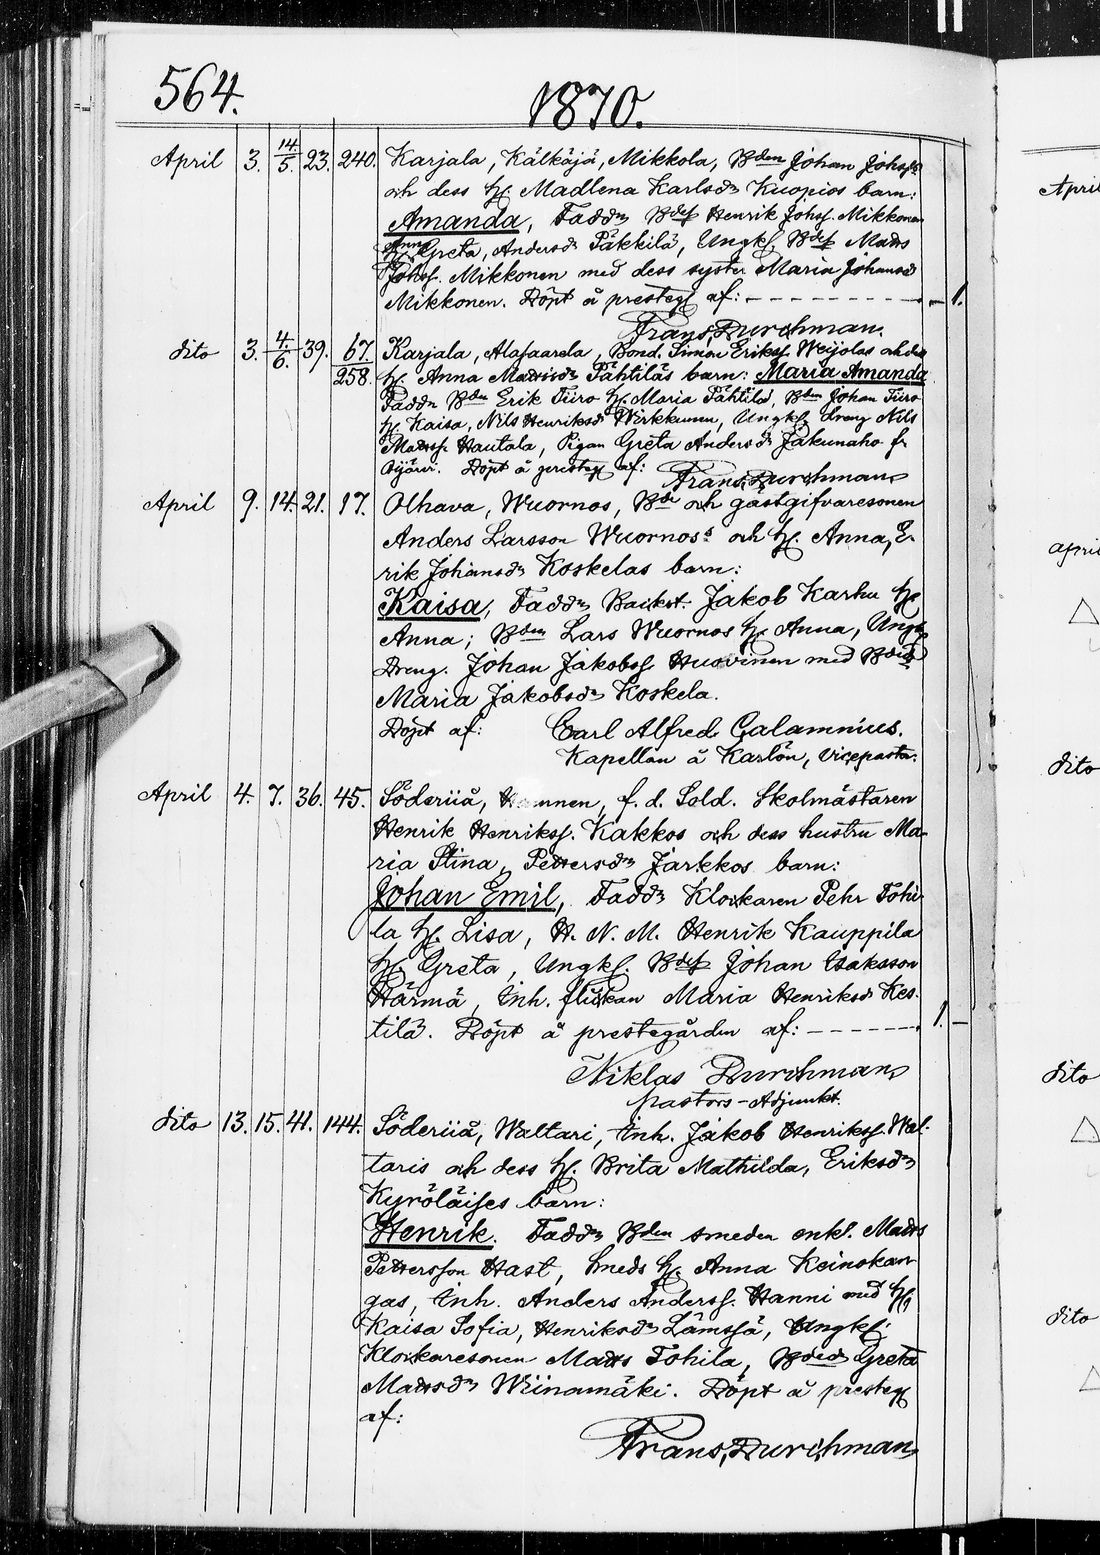 564. 1870.
April 3. 14./5. 23. 240. Karjala, Kälkäjä, Mikkola, Bden Johan Johsfs
och dess h. Madlena Karlsdr Kuopios barn:
Amanda, Faddr Bdes Henrik Johsf. Mikkonen
h. Anna Greta, Andersdr Päkkilä, Ungk. Bdes Matts
Johsf. Mikkonen med dess syster Maria Johansd
Mikkonen. Döpt å presteg af: 1.
Frans Durchman.
dito 3. 4./6. 39. 67./258. Karjala, Alasaarela, Bond. Simon Eriksf. Weijolas och dess
h. Anna Mattsdr Pähtiläs barn: Maria Amanda
Faddr Bden Erik Tiiro h. Maria Pähtilä, Bden Johan Tiiro
h. Kaisa, Nils Henriksdr Wirkkunen, Ungk. dreng Nils
Mattsf. Hautala, Pigan Greta Andersdr Jakunaho fr.
Oijärvi. Döpt å presteg af: Frans Durchman
April 9. 14. 21. 17. Olhava, Wuornos, Bde och gästgifvaresonen
Anders Larsson Wuornoss och h. Anna, E-
rik Johansdr Koskelas barn:
Kaisa, Faddr Backst. Jakob Karhu h.
Anna; Bden Lars Wuornos h. Anna, Ungk.
Dreng. Johan Jakobsf Huovinen med Bded
Maria Jakobsdr Koskela.
Döpt af: Carl Alfred Calamnius.
Kapellan å Karlön, vicepastor.
April 4. 7. 36. 45. Söderiiå, f. d. Sold. Skolmästaren
Henrik Henriksf. Kakkos och dess hustru Ma-
ria Stina, Pettersdr Jarkkos barn:
Johan Emil, Faddr Klockaren Pehr Tohi-
la h. Lisa, H. N. M. Henrik Kauppila
h. Greta, Ungk. Bdes Johan Isaksson
Härmä, Inh. flickan Maria Henriksd Kes-
tilä. Döpt å prestegården af: 1.
Niklas Durchman
pastors-Adjunkt.
dito 13. 15. 41. 144. Söderiiå, Waltari, Inh. Jakob Henriksf. Wal-
taris och dess h. Brita Mathilda, Eriksdr
Kyröläises barn:
Henrik. Faddr Bden smeden enkl. Matts
Pettersson Hast, Smeds h. Anna Keinokan-
gas, Inh. Anders Andersf. Hanni med h.
Kaisa Sofia, Henriksdr Lämsjä, Ungk.
Klockaresonen Matts Tohila, Bded Greta
Mattsdr Wiinamäki. Döpt å presteg
af:
Frans Durchman
April
april
dito
dito
dito